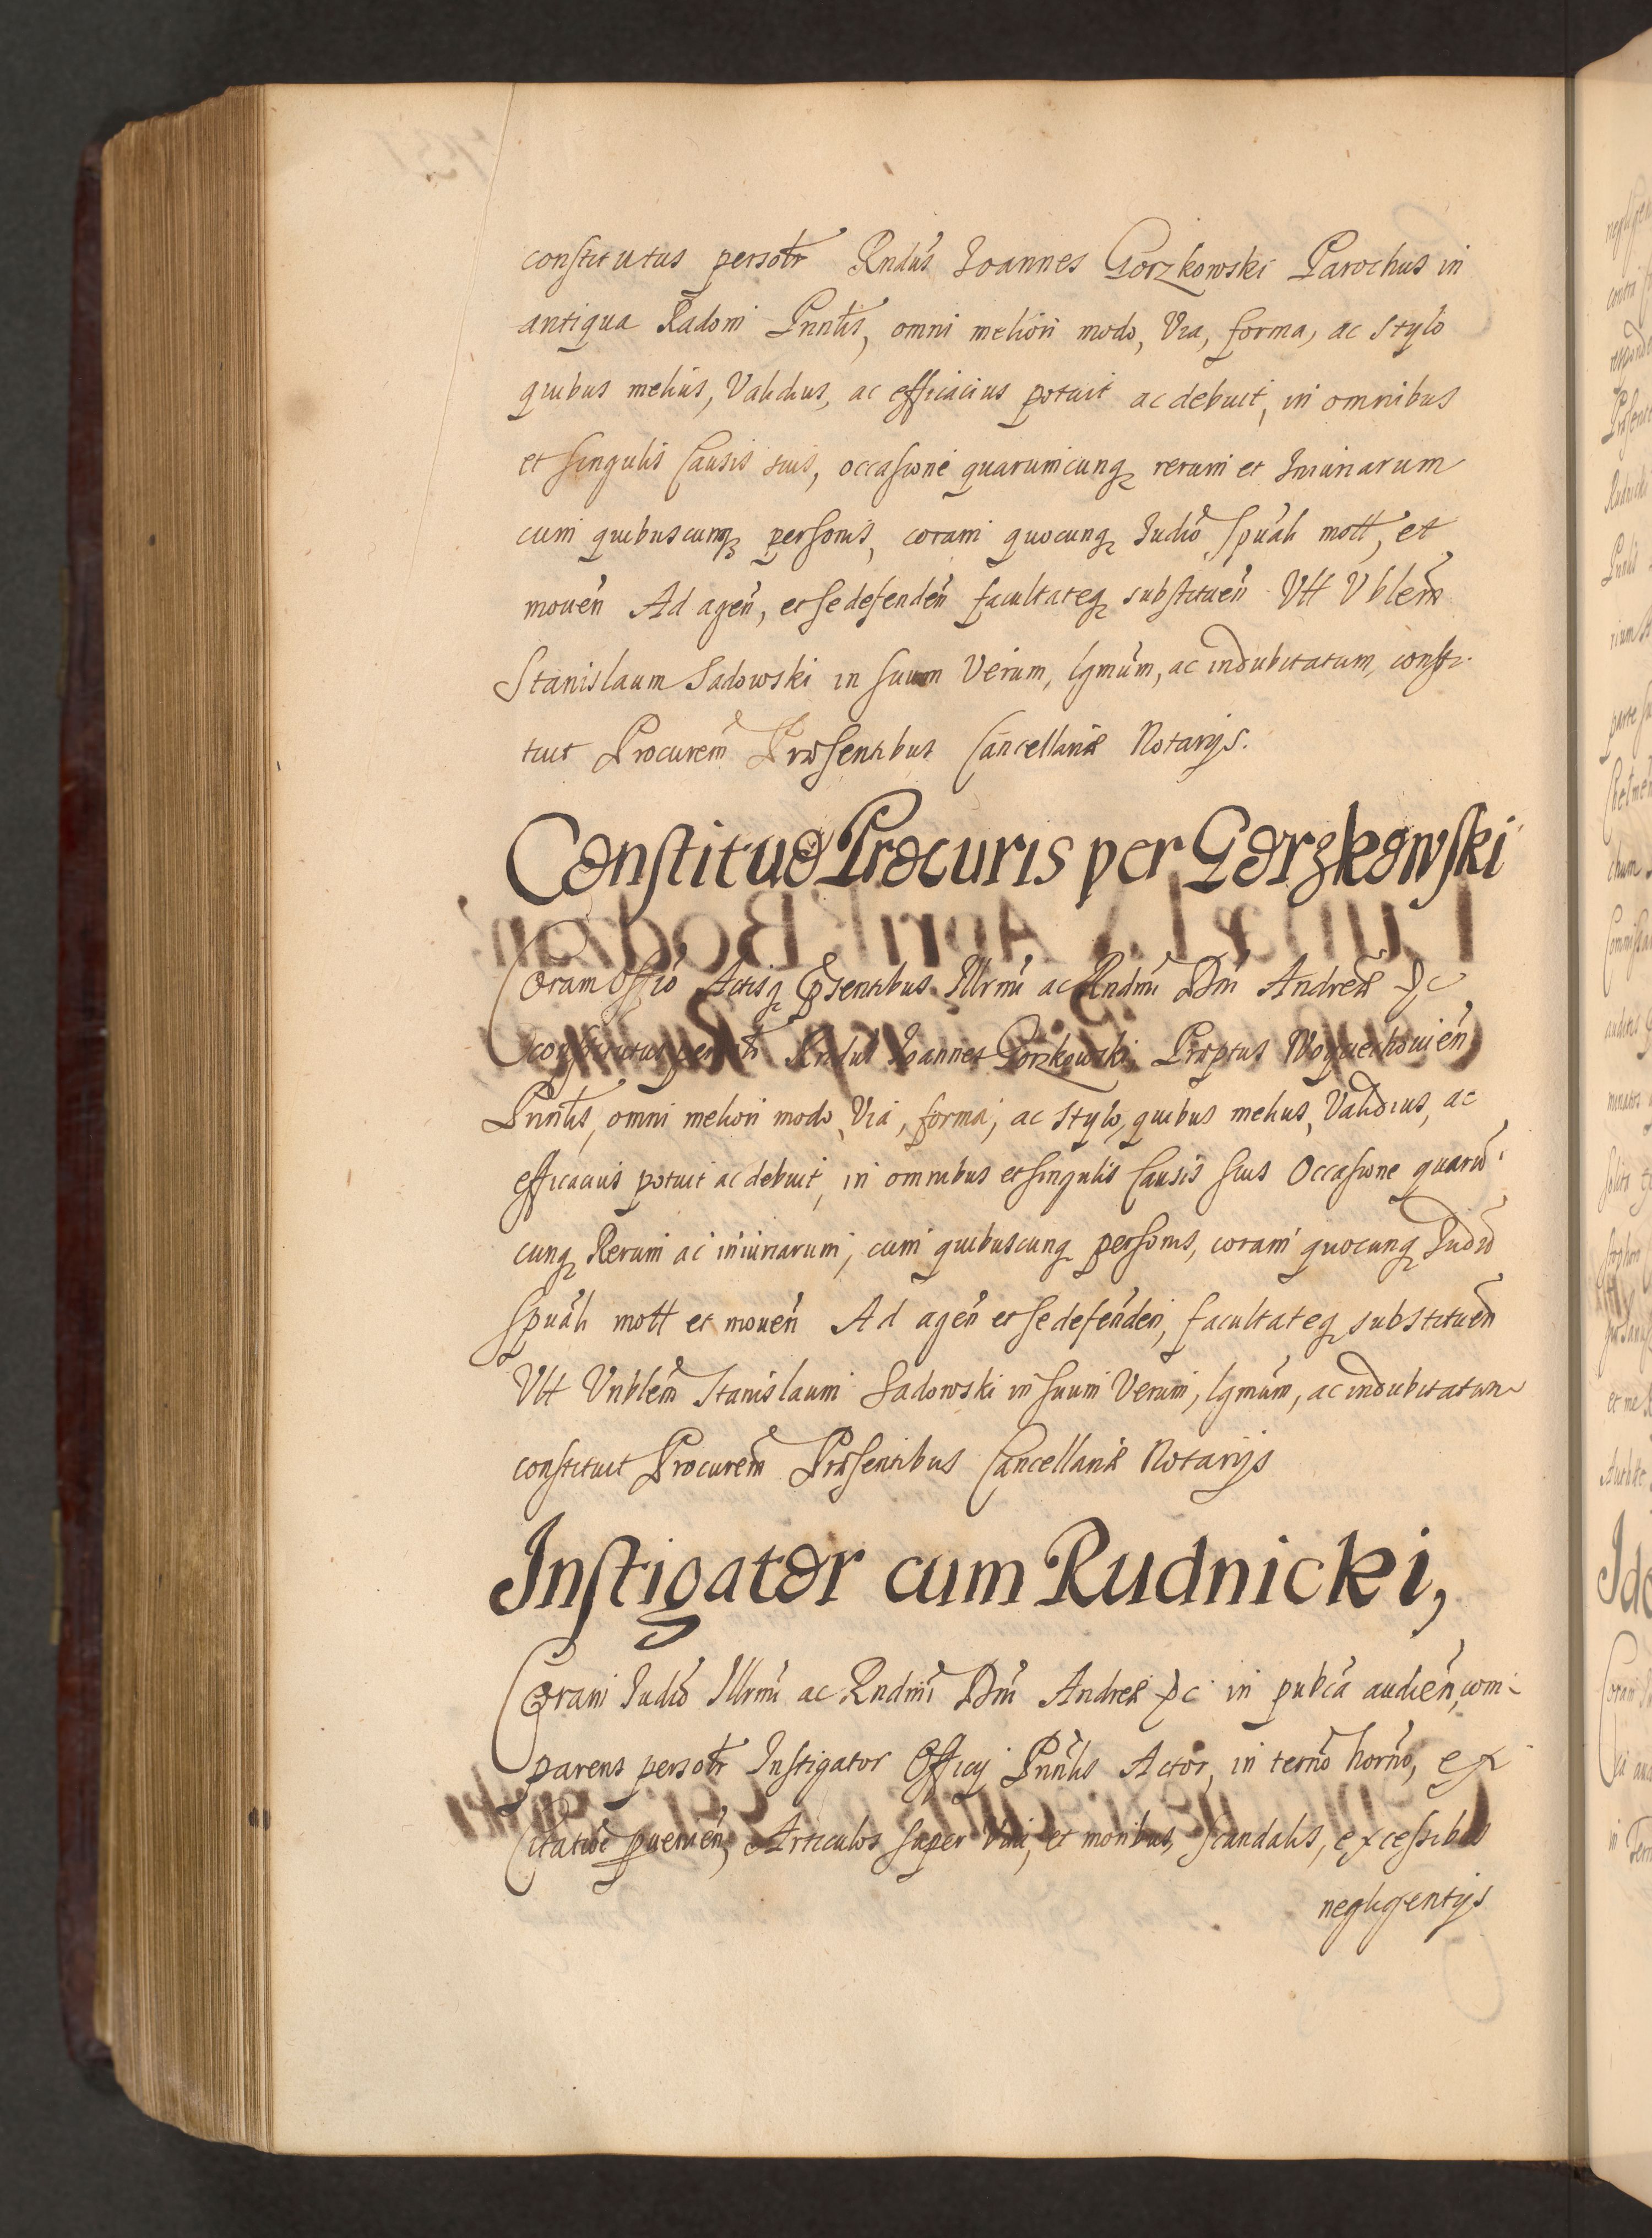 constitutus persotr Rndus Ioannes Gorzkowski Parochus in
antiqua Radom Prntis, omni meliori modo, Via, forma, ac Stylo
quibus melius, Validius, ac efficacius potuit ac debuit, in omnibus
et singulis Causis suis, occasione quarumcunq rerum et Iniuriarum
cum quibuscunq personis, coram quocunq Iudio Spuali mott, et
mouen Ad agen, et se defenden facultateq substituen Vtt Vblem
Stanislaum Sadowski in suum Verum, lgmum, ac indubitatum, consti-
tuit Procurem Præsentibus Cancellariæ Notarijs.
Constituo Procuris per Gorzkowski
Coram Offio Actisq Psentibus Illrmi ac Rndmi Dni Andreæ &c
constitutus persotr Rndus Ioannes Gorzkowski Præptus Woyciechouien
Prntis, omni meliori modo, Via, forma, ac Stylo, quibus melius, Validius, ac
efficacius potuit ac debuit, in omnibus et singulis Causis suis Occasione quarū-
cunq Rerum ac iniuriarum, cum quibuscunq personis, coram quocunq Iudio
Spuali mott et mouen Ad agen et se defenden, facultateq substituen
Vtt Vnblem Stanislaum Sadowski in suum Verum, lgmum, ac indubitatum
constituit Procurem Præsentibus Cancellariæ Notarijs
Instigator cum Rudnicki,
Coram Iudio Illrmi ac Rndmi Dni Andreæ &c in pubca audien, com-
parens persotr Instigator Officij Prntis Actor, in terno horno, ex
Citatoe puenien, Articulos super Vita, et moribus, scandalis, excessibus
negligentijs